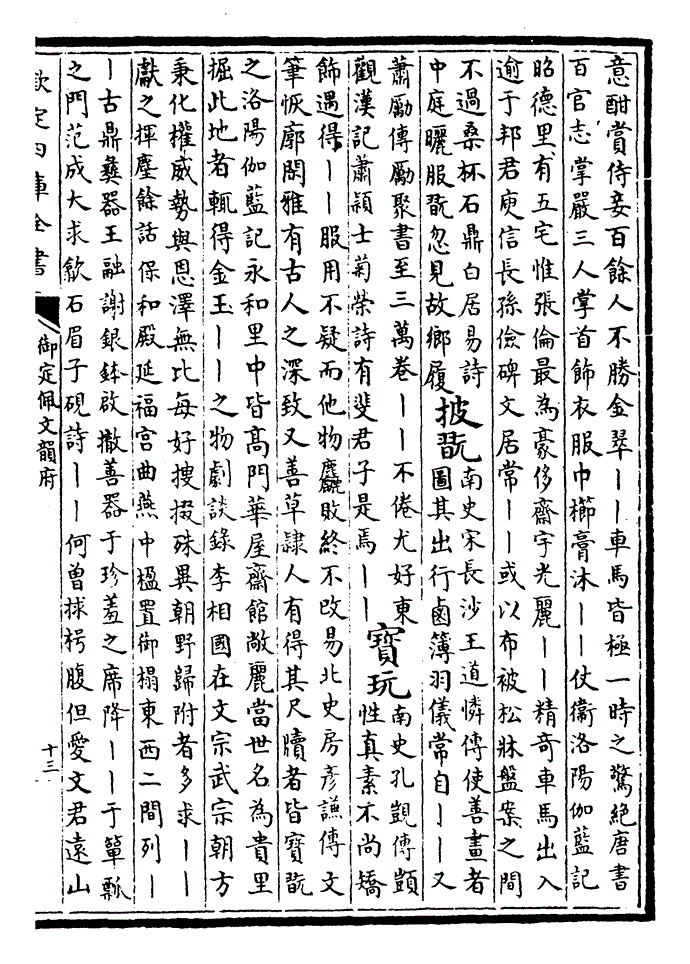 意酣賞侍妾百餘人不勝金翠——車馬皆極一時之驚絕唐書
百官志掌嚴三人掌首飾衣服巾櫛膏沐——仗衞洛陽伽藍記
昭德里有五宅惟張倫最為豪侈齋宇光麗——精奇車馬出入
逾于邦君庾信長孫儉碑文居常——或以布被松牀盤案之間
不過桑杯石鼎白居易詩
中庭曬服翫忽見故鄉履
披翫
南史宋長沙王道憐傳使善畫者
圖其出行鹵簿羽儀常自——又
蕭勵傳勵聚書至三萬卷——不倦尤好東
觀漢記蕭穎士菊榮詩有斐君子是焉——
寶玩
南史孔顗傳顗
性真素不尚矯
飾遇得——服用不疑而他物麤敗終不改易北史房彥謙傳文
筆恢廓閑雅有古人之深致又善草隸人有得其尺牘者皆寶翫
之洛陽伽藍記永和里中皆高門華屋齋館敞麗當世名為貴里
掘此地者輒得金玉——之物劇談錄李相國在文宗武宗朝方
秉化權威勢與恩澤無比每好搜掇殊異朝野歸附者多求——
獻之揮麈餘話保和殿延福宮曲燕中楹置御榻東西二間列—
—古鼎彝器王融謝銀鉢啟撤善器于珍羞之席降——于簞瓢
之門范成大求歙石眉子硯詩——何曾捄枵腹但愛文君遠山
欽定四庫全書
御定佩文韻府
十三